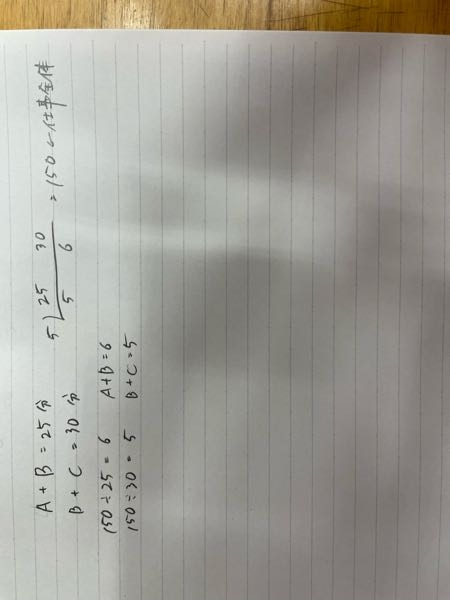 A + B = 25分
B + C = 30分
5 ) 25 30
5 6 = 150 ← 仕事全体
150 ÷ 25 = 6 A+B=6
150 ÷ 30 = 5 B+C=5